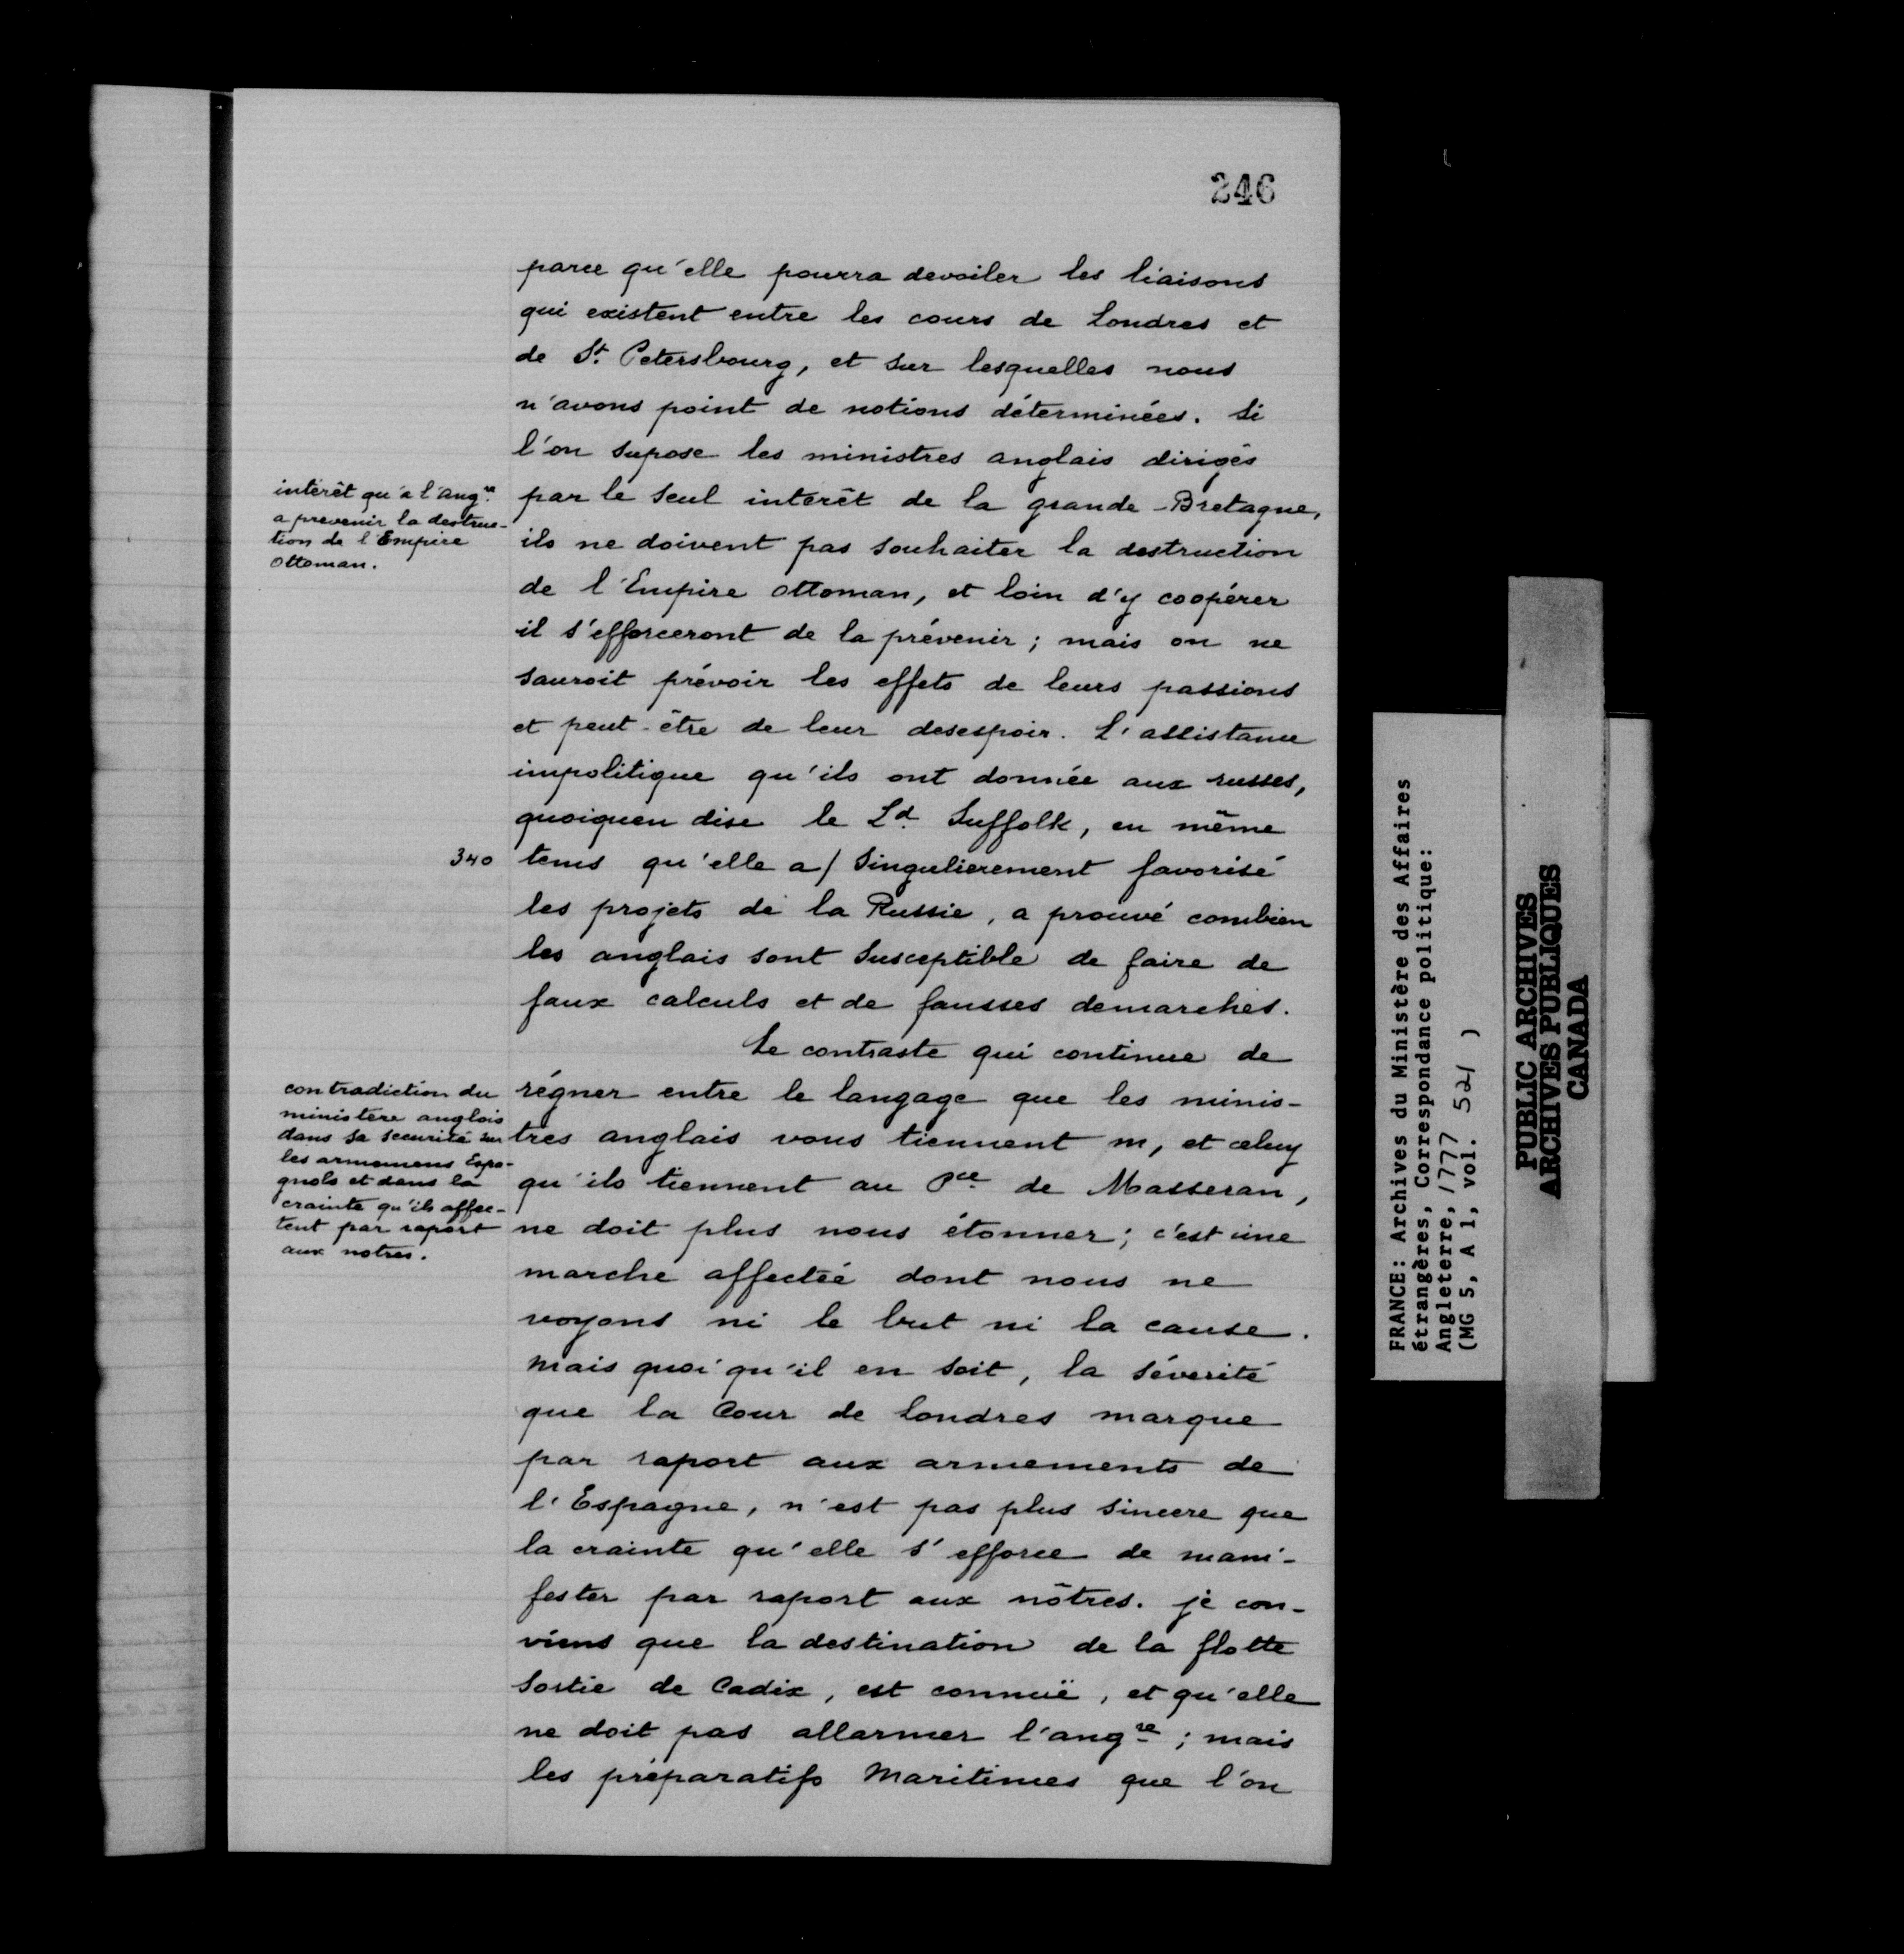 246
parce qu'elle pourra devoiler les liaisons
qui existent entre les cours de Londres et
de St. Petersbourg, et sur lesquelles nous
n'avons point de notions déterminées. Si
l'on supose les ministres anglais dirigés
intérêt qu'a l'angre
a prevenir la destruc-
tion de l'Empire
Ottoman.
par le seul intérêt de la grande-Bretagne,
ils ne doivent pas souhaiter la destruction
de l'Empire Ottoman, et loin d'y coopérer
il s'efforceront de la prévenir; mais on ne
sauroit prévoir les effets de leurs passions
et peut-être de leur desespoir. L'assistance
impolitique qu'ils ont donnée aux russes,
quoiquen dise le Ld. Suffolk, en même
340
tems qu'elle a/ singulierement favorisé
les projets de la Russie, a prouvé combien
les anglais sont susceptible de faire de
faux calculs et de fausses demarches.
Le contraste qui continue de
contradiction du
ministère anglois
dans sa securité sur
les armemens Espa-
gnols et dans la
crainte qu'ils affec-
tent par raport
aux notres.
régner entre le langage que les minis-
tres anglais vous tiennent m, et celuy
qu'ils tiennent au Pce de Masseran,
ne doit plus nous étonner; c'est une
marche affectée dont nous ne
voyons ni le but ni la cause.
Mais quoi qu'il en soit, la séverité
que la Cour de londres marque
par raport aux armements de
l'Espagne, n'est pas plus sincere que
la crainte qu'elle s'efforce de mani-
fester par raport aux nôtres. je con-
viens que la destination de la flotte
sortie de Cadix, est connuë, et qu'elle
ne doit pas allarmer l'angre; mais
les préparatifs Maritimes que l'on
FRANCE: Archives du Ministère des Affaires
étrangères, Correspondance politique:
Angleterre, 1777
(MG 5, A 1, vol. 521 )
PUBLIC ARCHIVES
ARCHIVES PUBLIQUES
CANADA